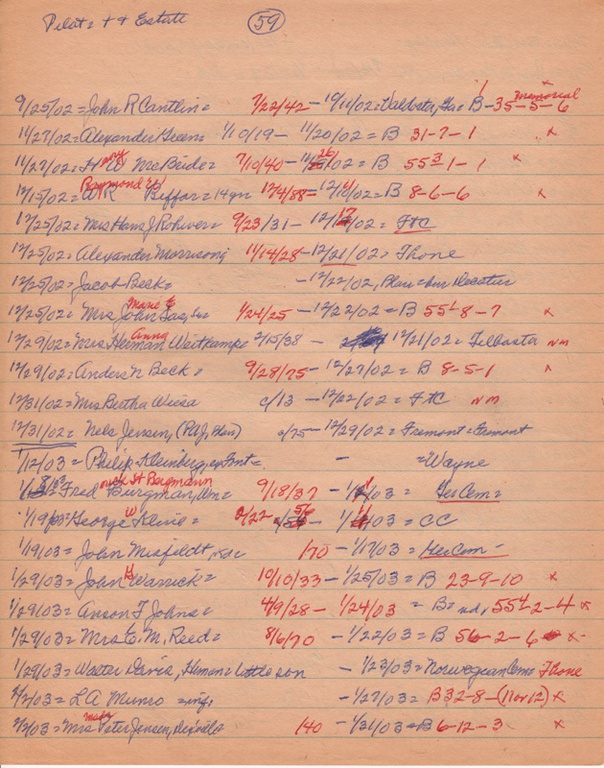 Pilot = + & Estate (59)
9/25/02 = John R Cantlin = 7/22/42 - 10/11/02 = Valdosta, Ga = B - 35 - 5 - 6 Memorial
11/27/02 = Alexander Green = 1/10/19 - 11/20/02 = B 31-7-1 x
11/29/02 = H W McBride = 7/10/40 - 11/26/02 = B 55 3 1-1 x
12/15/02 = Raymond W Biffar = 14 yr 12/4/88 - 12/10/02 = B 8-6-6 x
12/25/02 = Mrs Hans J Rohwer = 9/23/31 - 12/17/02 = FtC
12/25/02 = Alexander Morrison, 11/14/28 - 12/21/02 = Fhone
12/25/02 = Jacob Beck = - 12/22/02,
12/25/02 = Mrs John Marie E Sr = 1/24/25 - 12/22/02 = B 55 1 8-7 x
12/29/02 = Mrs Herman Anna Weitkamp = 2/15/38 - 12/21/02 = Telbasta nm
12/29/02 = Anders N Beck = 9/28/75 - 12/27/02 = B 8-5-1 x
12/31/02 = Mrs Bertha Wiese c/13 - 12/22/02 = FtC nm
12/31/02 = Nels Jensen, a/75 - 12/29/02 = Fremont = Fremont
1/12/03 = Philip Kleinberg, - = Wayne
Fred -rick H Bergmann Burgman, 9/18/37 - /03 = Ger Cem =
1/19/03 = George W Kline = 2/22 56 - /03 = CC
1/19/03 = John Misfeldt, 1/70 - 1/17/03 = Ger Cem -
1/29/03 = John H Warrick = 10/10/33 - 1/25/03 = B 23-9-10 x
1/29/03 = Anson F Johns = 4/9/28 - 1/24/03 = B = 55 4-2-4 x
1/29/03 = Mrs E. M. Reed = 8/6/70 - 1/22/03 = B 56-2-6 x
1/29/03 = Walter Davis, Herman = little son - 1/23/03 = Norwegian Cem Fhone
2/2/03 = L A Munro = inf, - 1/27/03 = B 32-8-(11 or 12) x
2/2/03 = Mrs Peter Jensen, 1/40 - 1/31/03 = B 6-12-3 x